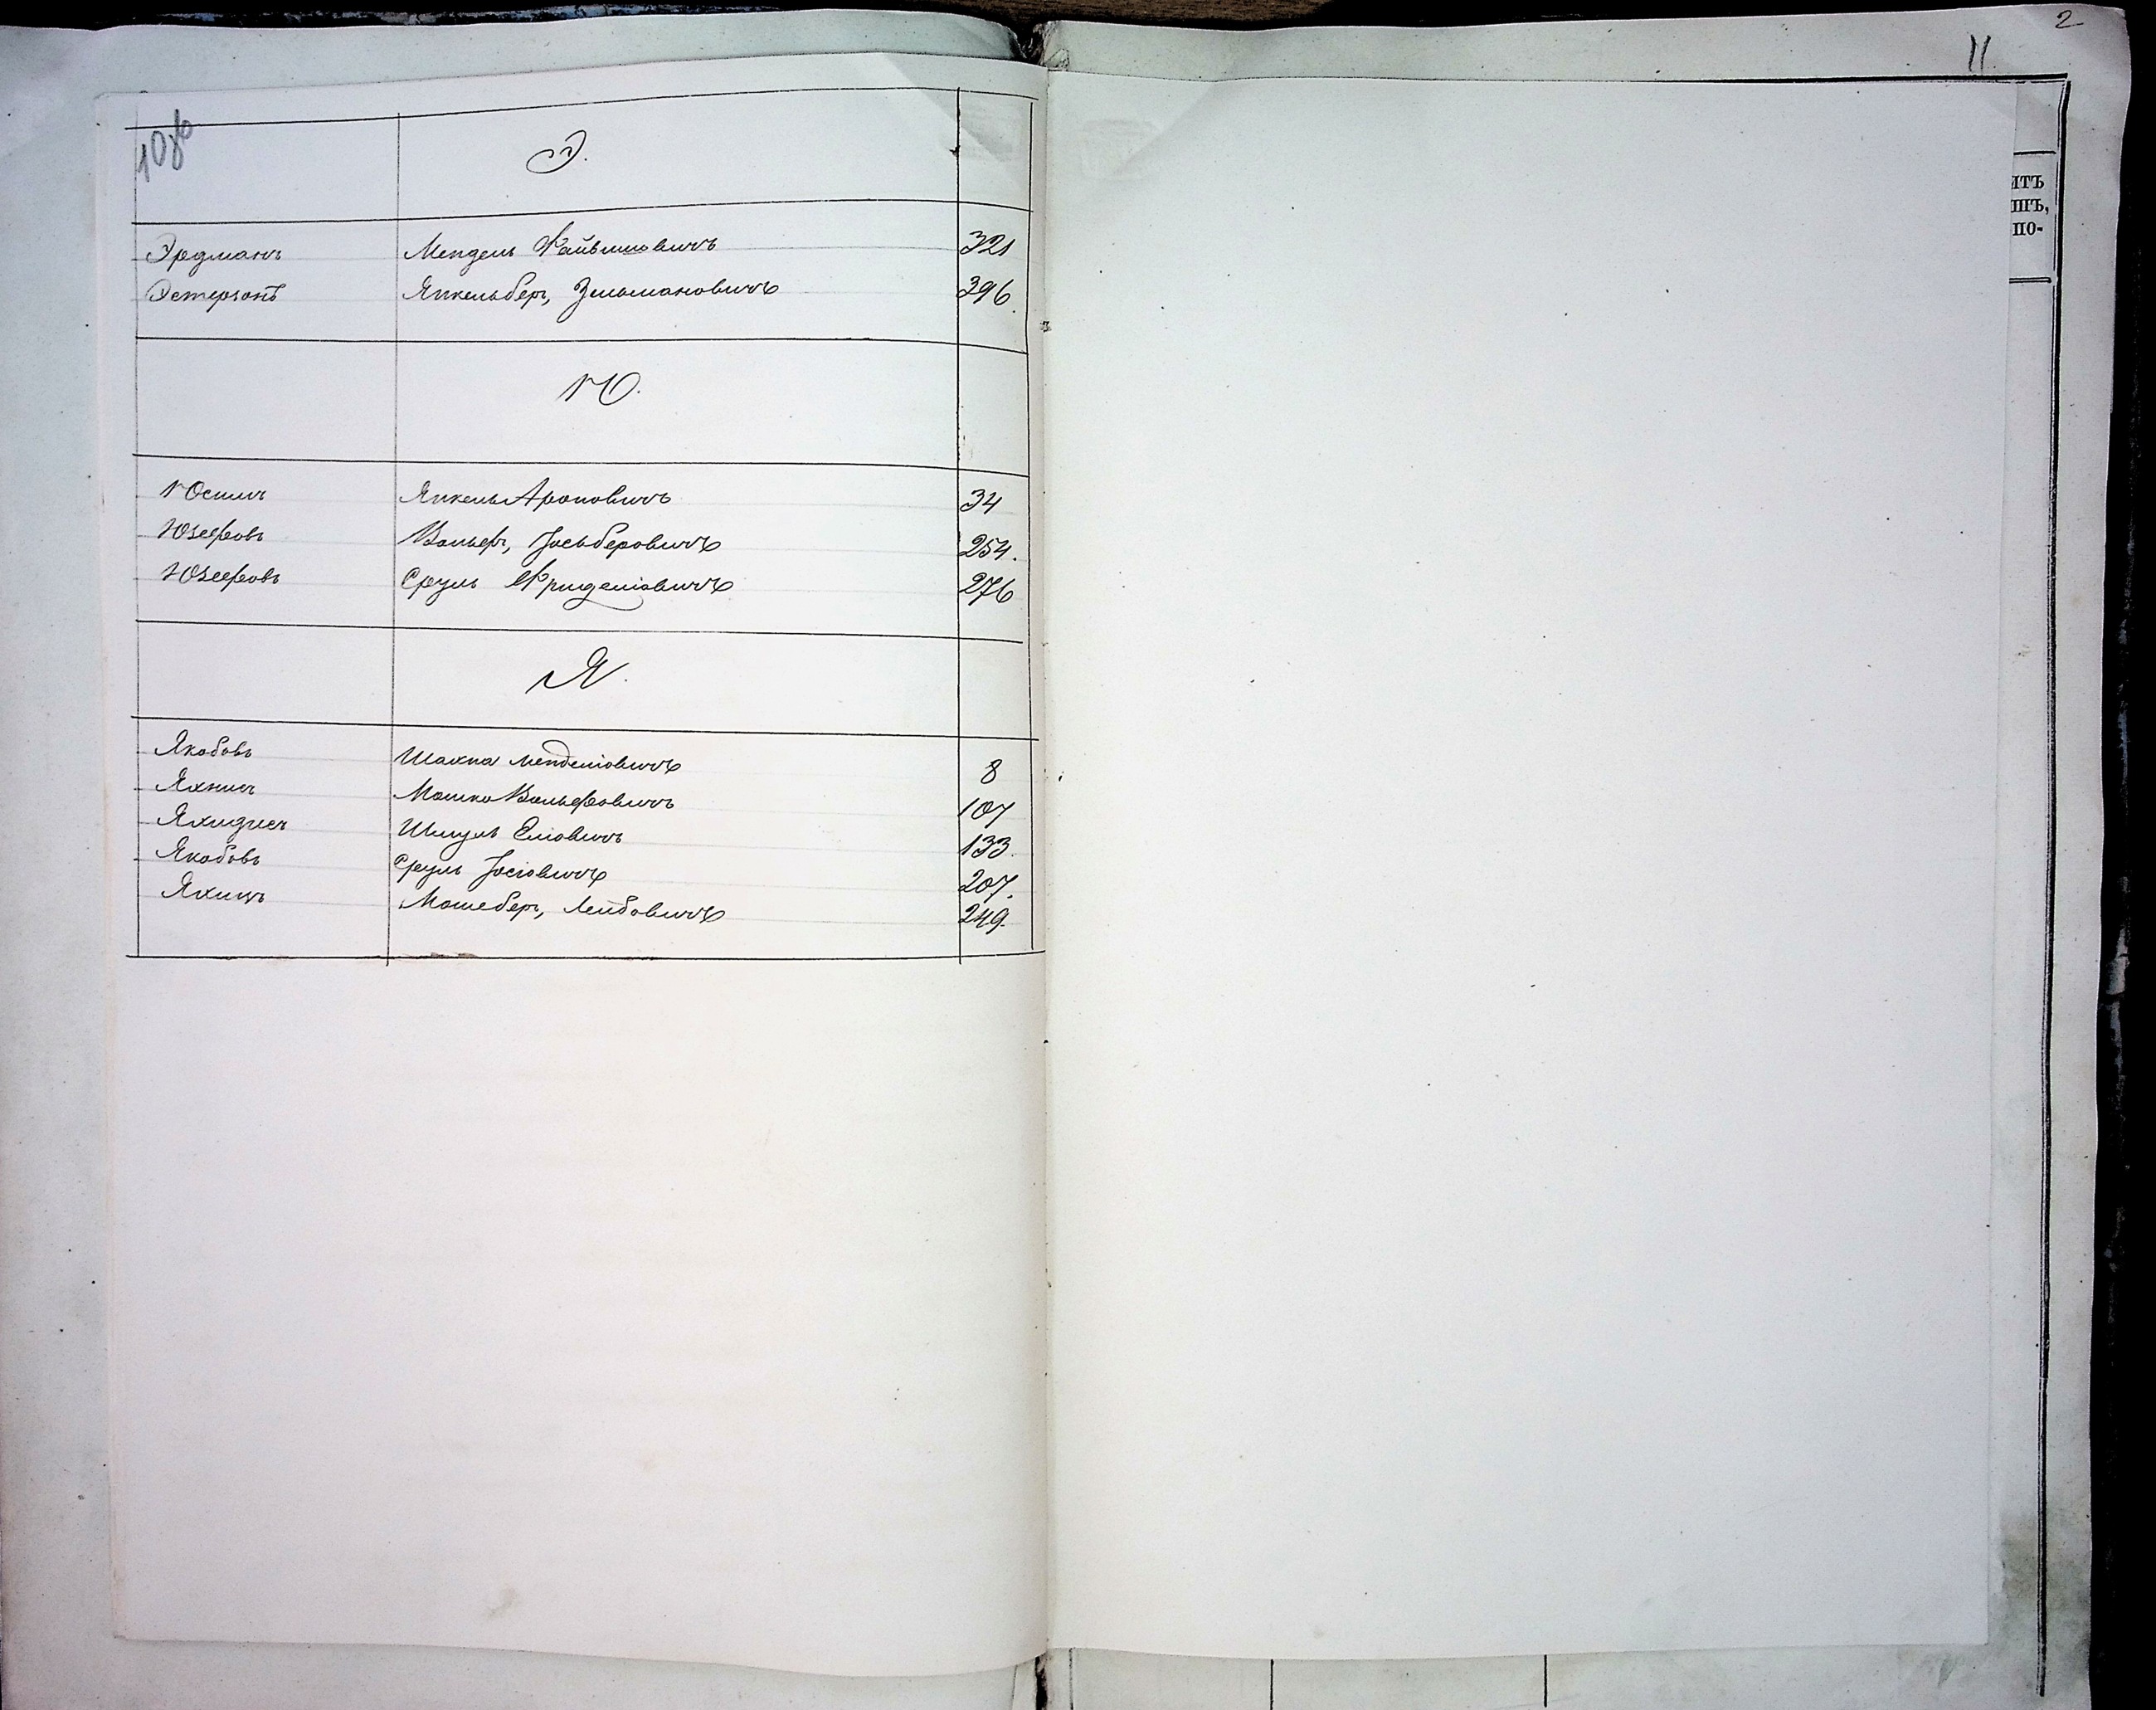 2
11
10об
Э.
Эрдманъ Мендель Файвишовичъ 321
Эстерзонъ Янкельберъ, Зельмановичъ 396.
Ю.
Юспичъ Янкель Ароновичъ 34
Юзефовъ Вольфъ, Јосьберовичъ 254.
Юзефовъ Сруль Фриделіовичъ 276
Я.
Якобовъ Шахна Менделіовичъ 8
Яхничъ Мошко Вольфовичъ 107
Яхиднеъ Шмуль Еліовичъ 133.
Якобовъ Сруль Јосіовичъ 207.
Яхицъ Мошеберъ, Лейбовичъ 249.
итъ
шъ,
по-